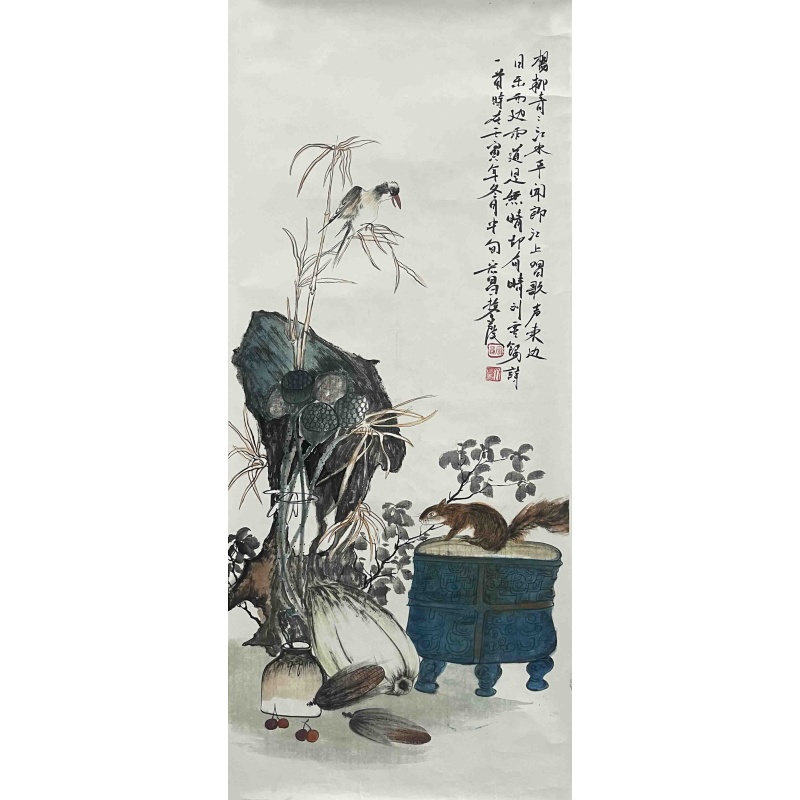 楊柳青〻江水平聞郎江上唱歌声東边
日出西边雨道是無晴却有晴刘禹錫詩
一首時在壬寅年冬月中旬